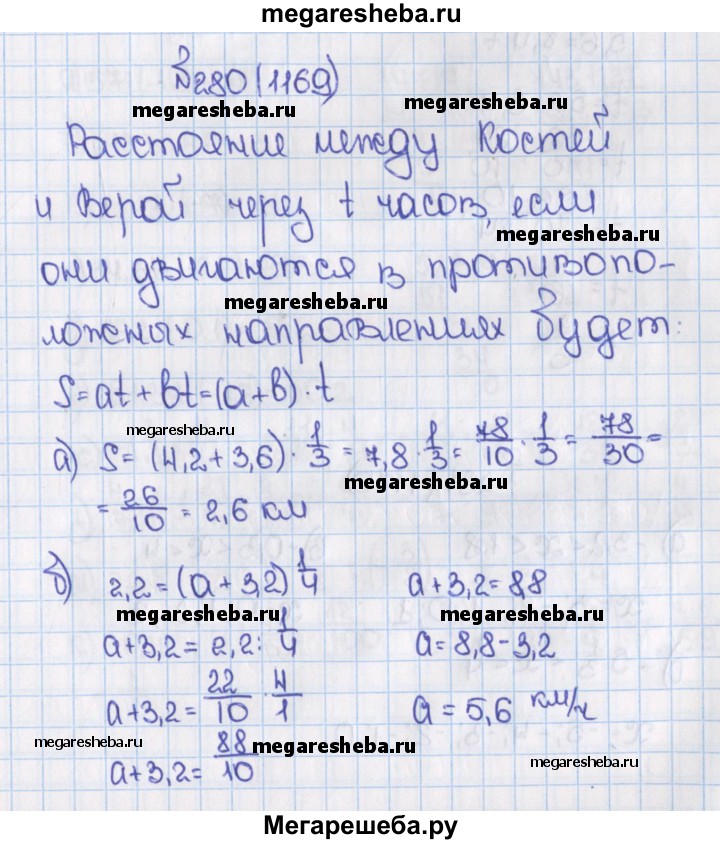 megaresheba.ru
№280(1169)
megaresheba.ru megaresheba.ru
Расстояние между Костей
и Верой через t часов, если
megaresheba.ru
они двигаются в противопо-
megaresheba.ru
ложных направлениях будет:
S=at+bt=(a+b)·t
megaresheba.ru megaresheba.ru
а) S=(4,2+3,6)·1/3=7,8·1/3=78/10·1/3=78/30=
megaresheba.ru
=26/10=2,6 км
б) 2,2=(a+3,2)1/4 a+3,2=8,8
megaresheba.ru megaresheba.ru
a+3,2=2,2:1/4 a=8,8-3,2
a+3,2=22/10·4/1 a=5,6 км/ч
megaresheba.ru megaresheba.ru megaresheba.ru
a+3,2=88/10
Мегарешеба.ру